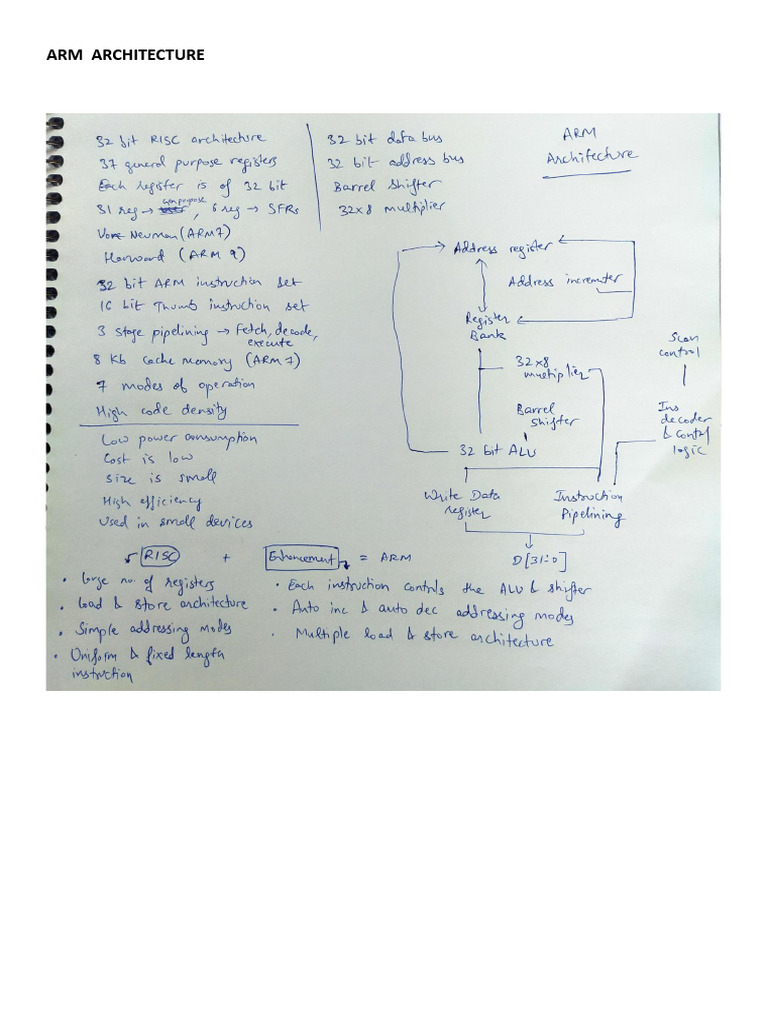 ARM ARCHITECTURE
32 bit RISC architecture
37 general purpose registers
Each register is of 32 bit
31 reg → gen purpose, 6 reg → SFRs
Von Neuman (ARM7)
Harward (ARM 9)
32 bit ARM instruction set
16 bit Thumb instruction set
3 stage pipelining → Fetch, decode,
execute
8 Kb Cache memory (ARM 7)
7 modes of operation
High code density
Low power consumption
Cost is low
Size is small
High efficiency
Used in small devices
32 bit data bus
32 bit address bus
Barrel shifter
32x8 multiplier
ARM
Architecture
Address register
Address incremter
Register
Bank
32x8
multiplier
Barrel
shifter
32 bit ALU
Scan
control
Ins
decoder
& contrl
logic
Write Data
register
Instruction
Pipelining
D[31:0]
RISC + Enhancement = ARM
• Large no. of registers
• Load & store architecture
• Simple addressing modes
• Uniform & fixed length
instruction
• Each instruction controls the ALU & shifter
• Auto inc & auto dec addressing modes
• Multiple load & store architecture